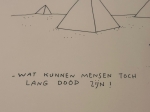 - WAT KUNNEN MENSEN TOCH
LANG DOOD ZIJN!